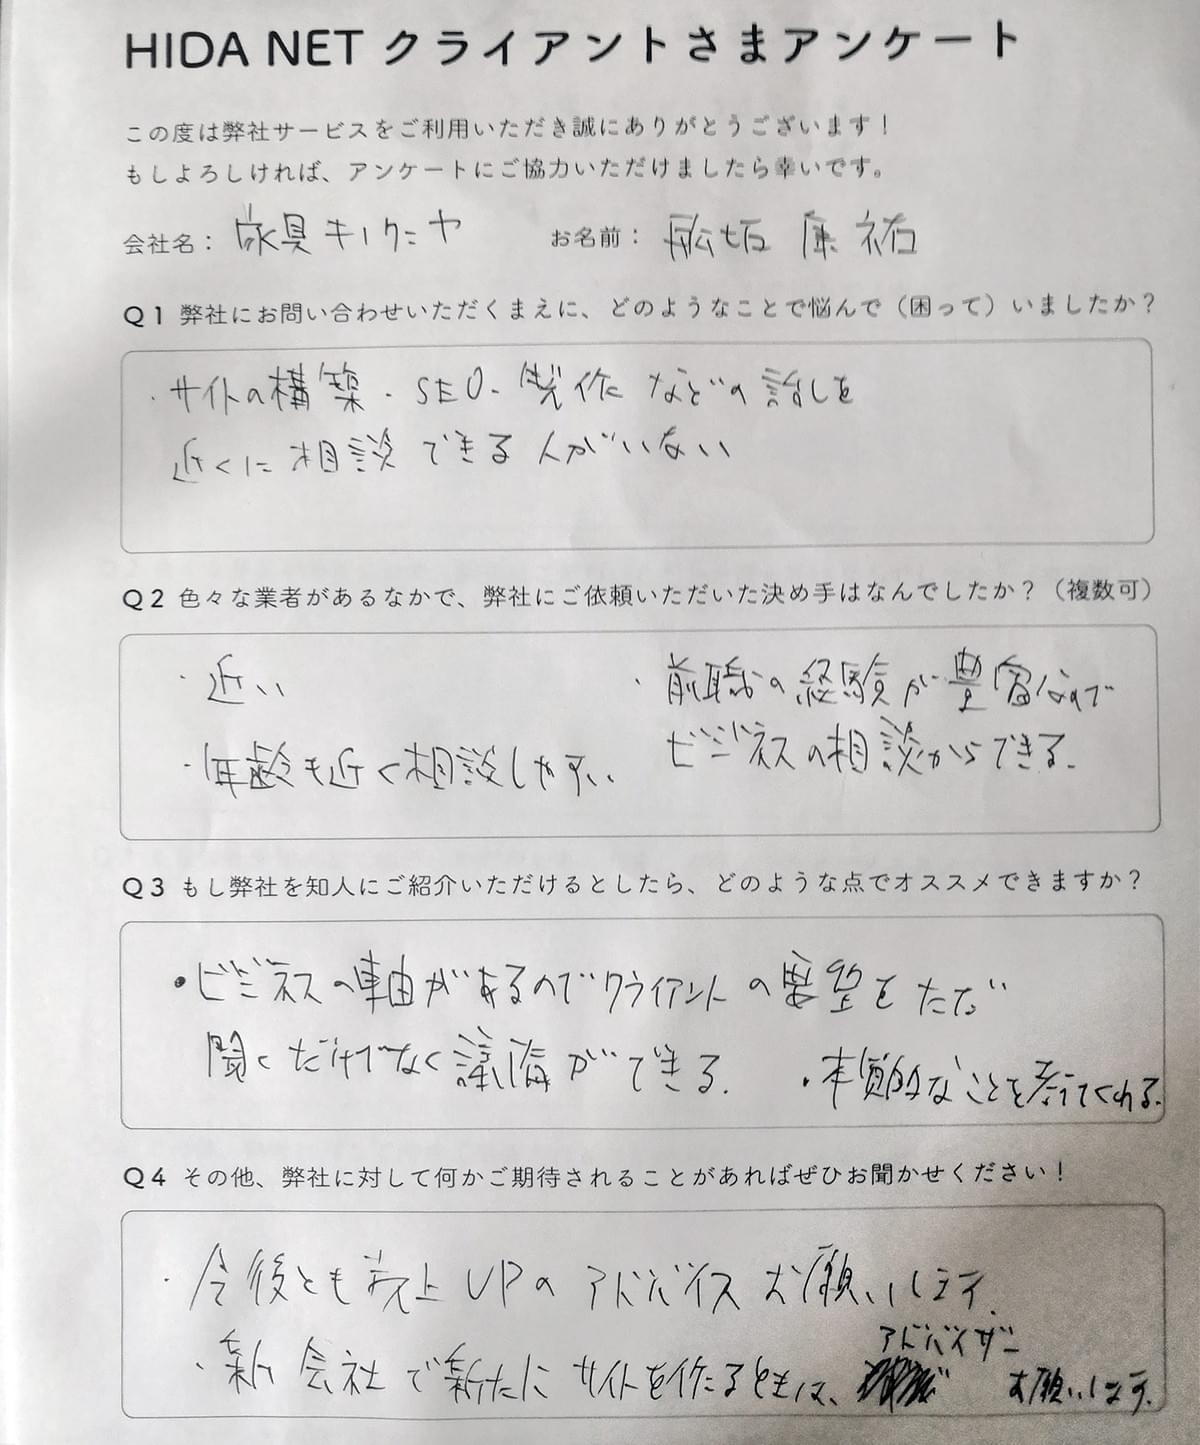 HIDA NET クライアントさまアンケート
この度は弊社サービスをご利用いただき誠にありがとうございます！
もしよろしければ、アンケートにご協力いただけましたら幸いです。
会社名： 家具キノクニヤ　お名前： 舩坂 康祐
Q1 弊社にお問い合わせいただくまえに、どのようなことで悩んで（困って）いましたか？
・サイトの構築・SEO・製作などの話しを
近くに相談できる人がいない
Q2 色々な業者があるなかで、弊社にご依頼いただいた決め手はなんでしたか？（複数可）
・近い
・年齢も近く相談しやすい
・前職の経験が豊富なので
ビジネスの相談からできる.
Q3 もし弊社を知人にご紹介いただけるとしたら、どのような点でオススメできますか？
・ビジネスの軸があるのでクライアントの要望をただ
聞くだけでなく議論ができる.
・本質的なことを考えてくれる.
Q4 その他、弊社に対して何かご期待されることがあればぜひお聞かせください！
・今後とも売上UPのアドバイスお願いします.
・新会社で新たにサイトを作るときは、アドバイザーお願いします.